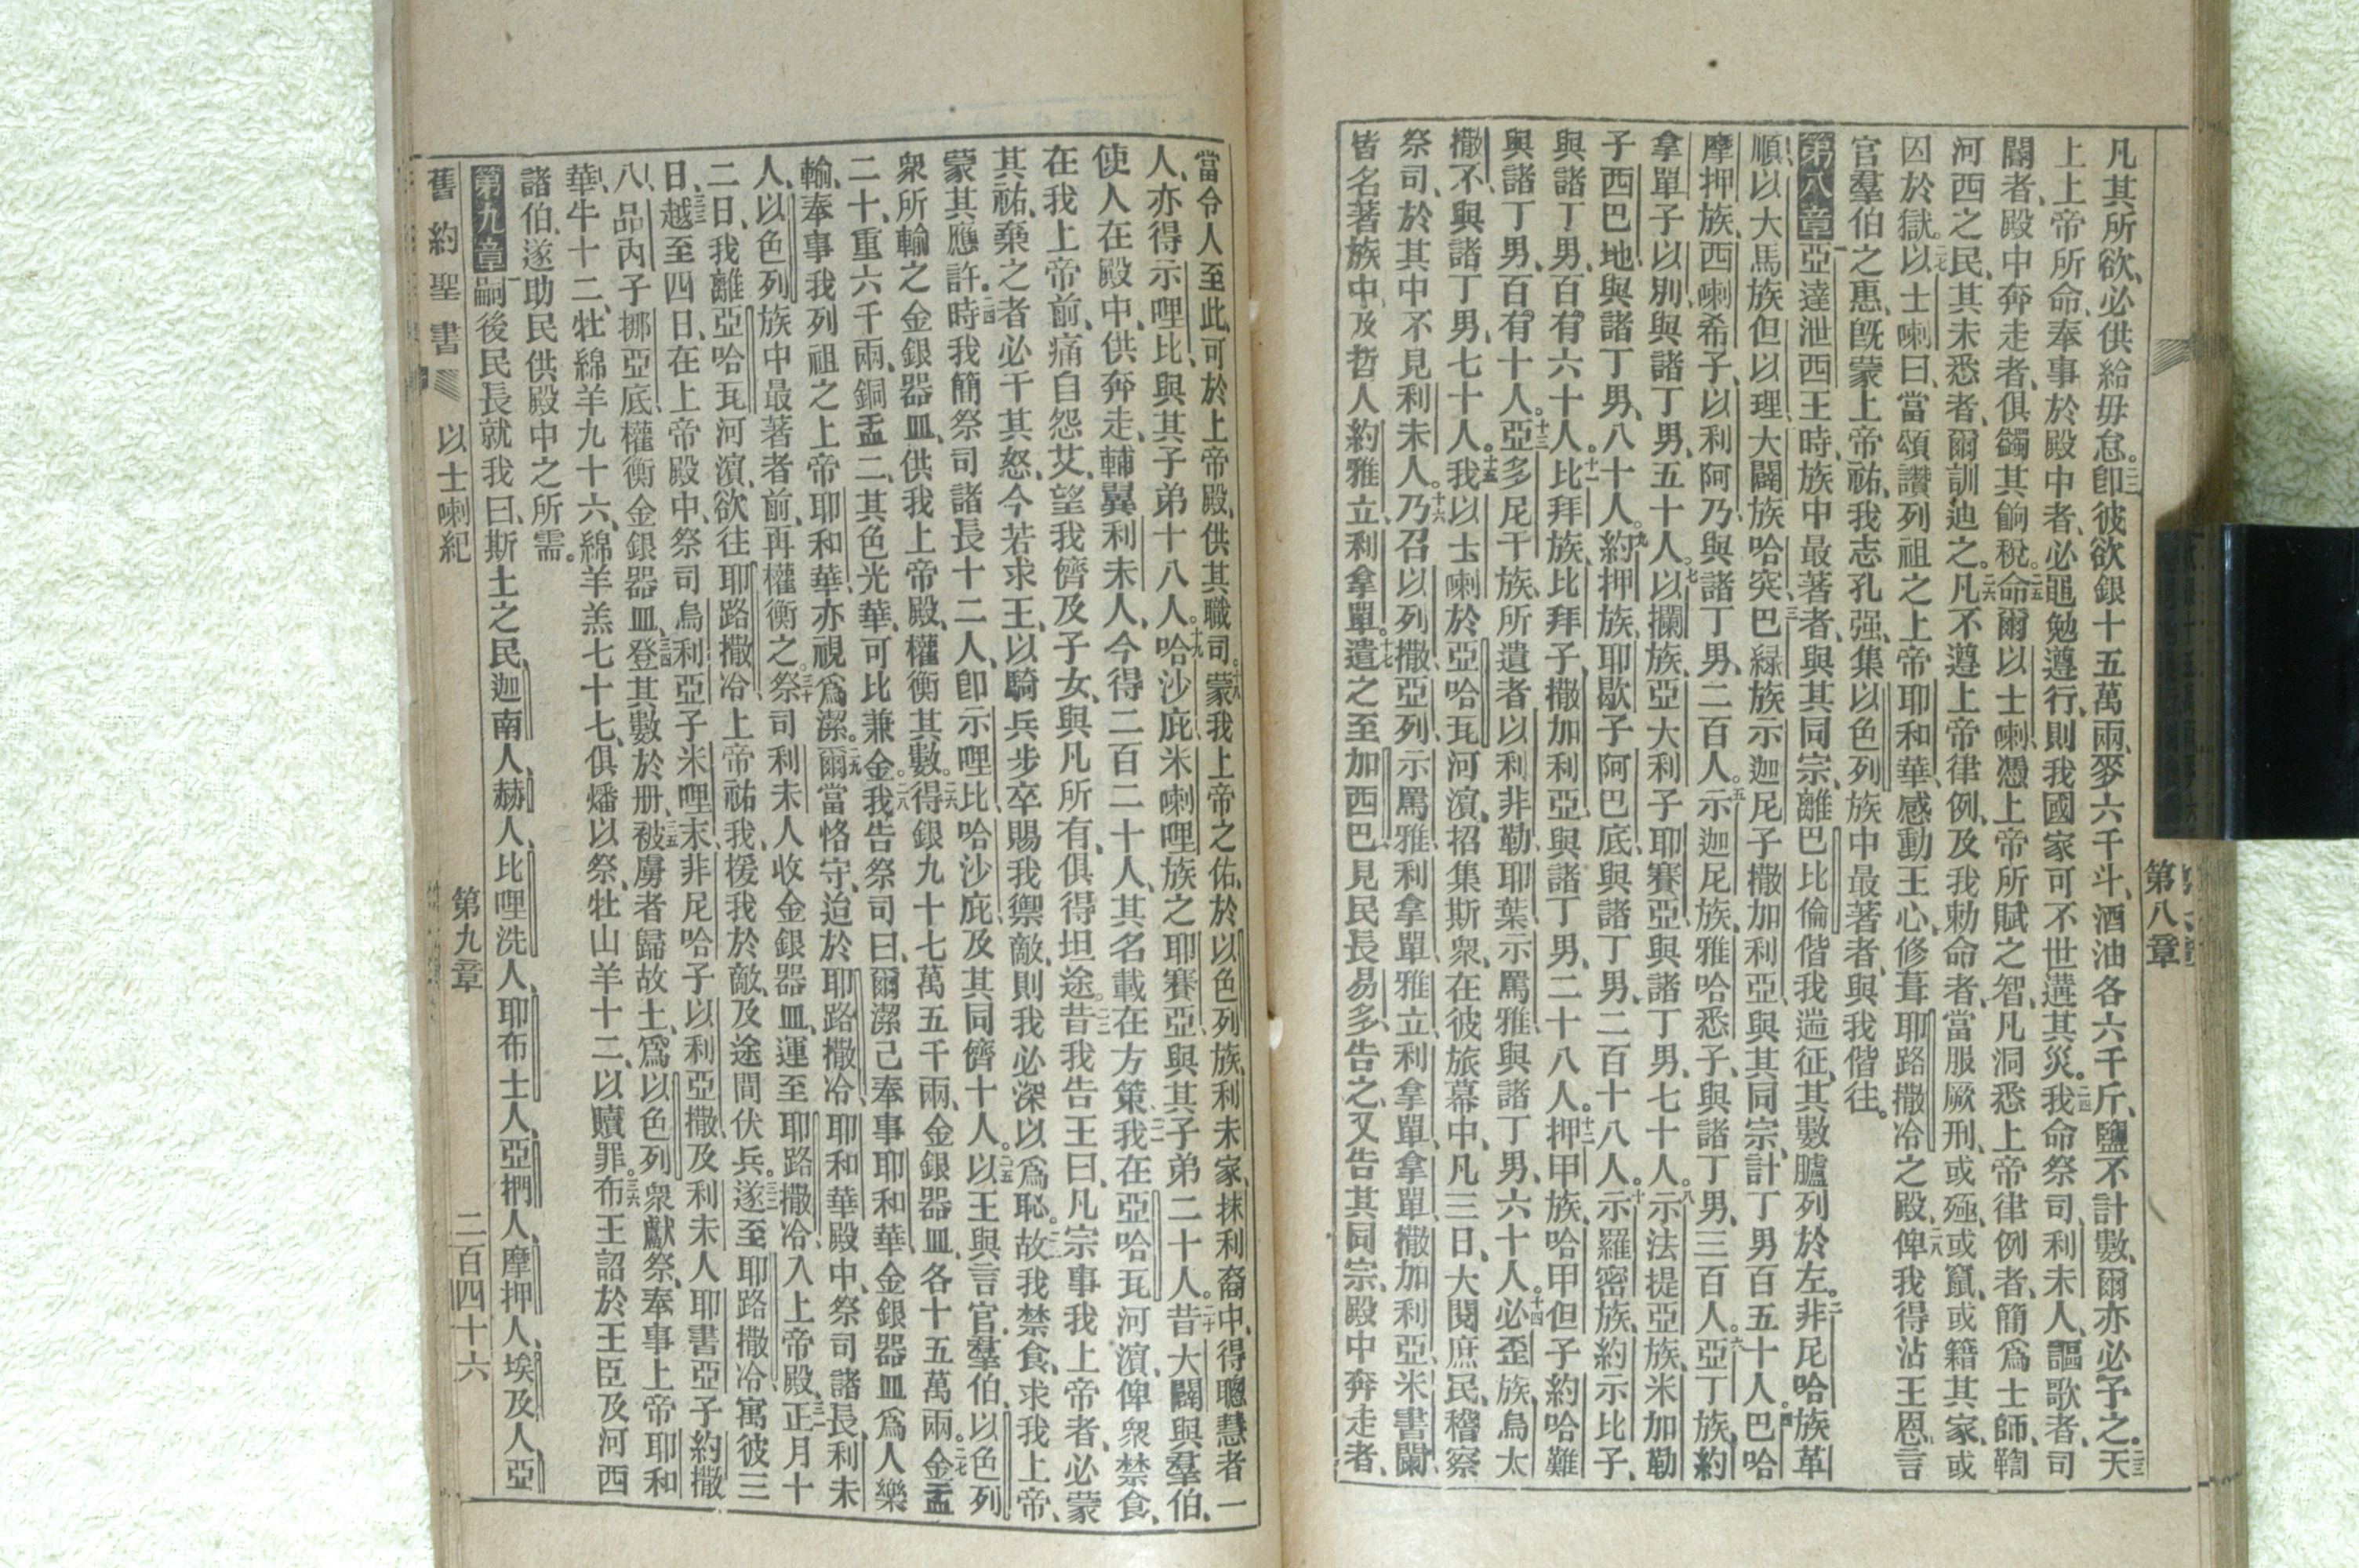 第八章
凡其所欲、必供給毋怠。二二卽彼欲銀十五萬兩、麥六千斗、酒油各六千斤、鹽不計數、爾亦必予之。二三天
上上帝所命、奉事於殿中者、必黽勉遵行、則我國家可不世遘其災。二四我命祭司、利未人、謳歌者、司
閽者、殿中奔走者、俱蠲其餉稅。二五命爾以士喇、憑上帝所賦之智、凡洞悉上帝律例者、簡爲士師、鞫
河西之民、其未悉者、爾訓迪之。二六凡不遵上帝律例、及我勅命者、當服厥刑、或殛、或竄、或籍其家、或
囚於獄。二七以士喇曰、當頌讚列祖之上帝耶和華、感動王心、修葺耶路撒冷之殿、二八俾我得沾王恩、言
官羣伯之惠、旣蒙上帝祐、我志孔强、集以色列族中最著者、與我偕往。
第八章 一亞達泄西王時、族中最著者、與其同宗、離巴比倫偕我遄征、其數臚列於左。二非尼哈族革
順、以大馬族但以理、大闢族哈突、三巴綠族示迦尼子撒加利亞、與其同宗、計丁男百五十人。四巴哈
摩押族、西喇希子、以利阿乃、與諸丁男、二百人。五示迦尼族、雅哈悉子、與諸丁男、三百人。六亞丁族、約
拿單子以別、與諸丁男、五十人。七以攔族、亞大利子耶賽亞、與諸丁男、七十人。八示法提亞族、米加勒
子西巴地、與諸丁男、八十人。九約押族、耶歇子阿巴底、與諸丁男、二百十八人。十示羅密族、約示比子、
與諸丁男、百有六十人。十一比拜族、比拜子、撒加利亞、與諸丁男、二十八人。十二押甲族、哈甲但子約哈難
與諸丁男、百有十人。十三亞多尼干族、所遺者、以利非勒、耶葉、示罵雅、與諸丁男、六十人。十四必歪族、烏太
撒不、與諸丁男、七十人。十五我以士喇於亞哈瓦河濵、招集斯衆、在彼旅幕中、凡三日、大閱庶民、稽察
祭司、於其中不見利未人。十六乃召以列撒、亞列、示罵雅、利拿單、雅立、利拿單、拿單、撒加利亞、米書闌、
皆名著族中、及哲人約雅立、利拿單。十七遣之至加西巴、見民長易多、告之、又告其同宗、殿中奔走者、
當令人至此、可於上帝殿、供其職司。十八蒙我上帝之佑、於以色列族、利未家、抹利裔中、得聰慧者一
人、亦得示哩比、與其子弟十八人。十九哈沙庇、米喇哩族之耶賽亞、與其子弟二十人。二十昔大闢與羣伯、
使人在殿中、供奔走、輔翼利未人、今得二百二十人、其名載在方策。二一我在亞哈瓦河濵、俾衆禁食、
在我上帝前、痛自怨艾、望我儕及子女、與凡所有、俱得坦途。二二昔我告王曰、凡宗事我上帝者、必蒙
其祐、棄之者必干其怒、今若求王、以騎兵步卒賜我禦敵、則我必深以爲恥。二三故我禁食、求我上帝、
蒙其應許。二四時我簡祭司諸長十二人、卽示哩比、哈沙庇、及其同儕十人。二五以王與言官、羣伯、以色列
衆所輸之金銀器皿、供我上帝殿、權衡其數。二六得銀九十七萬五千兩、金銀器皿、各十五萬兩。二七金盂
二十、重六千兩、銅盂二、其色光華、可比兼金。二八我告祭司曰、爾潔己奉事耶和華、金銀器皿、爲人樂
輸、奉事我列祖之上帝耶和華、亦視爲潔。二九爾當恪守、迨於耶路撒冷、耶和華殿中、祭司諸長、利未
人、以色列族中最著者前、再權衡之。三十祭司利未人收金銀器皿、運至耶路撒冷、入上帝殿、三一正月十
二日、我離亞哈瓦河濵、欲往耶路撒冷、上帝祐我、援我於敵、及途間伏兵。三二遂至耶路撒冷、寓彼三
日、三三越至四日、在上帝殿中、祭司烏利亞子米哩末、非尼哈子以利亞撒、及利未人耶書亞子約撒
八、品丙子挪亞底、權衡金銀器皿、三四登其數於册、三五被虜者歸故土、爲以色列衆獻祭、奉事上帝耶和
華、牛十二、牡綿羊九十六、綿羊羔七十七、俱燔以祭、牡山羊十二、以贖罪。三六布王詔於王臣、及河西
諸伯、遂助民供殿中之所需。
第九章 一嗣後民長就我曰、斯土之民、迦南人、赫人、比哩洗人、耶布士人、亞捫人、摩押人、埃及人、亞
舊約聖書 以士喇紀 第九章 二百四十六